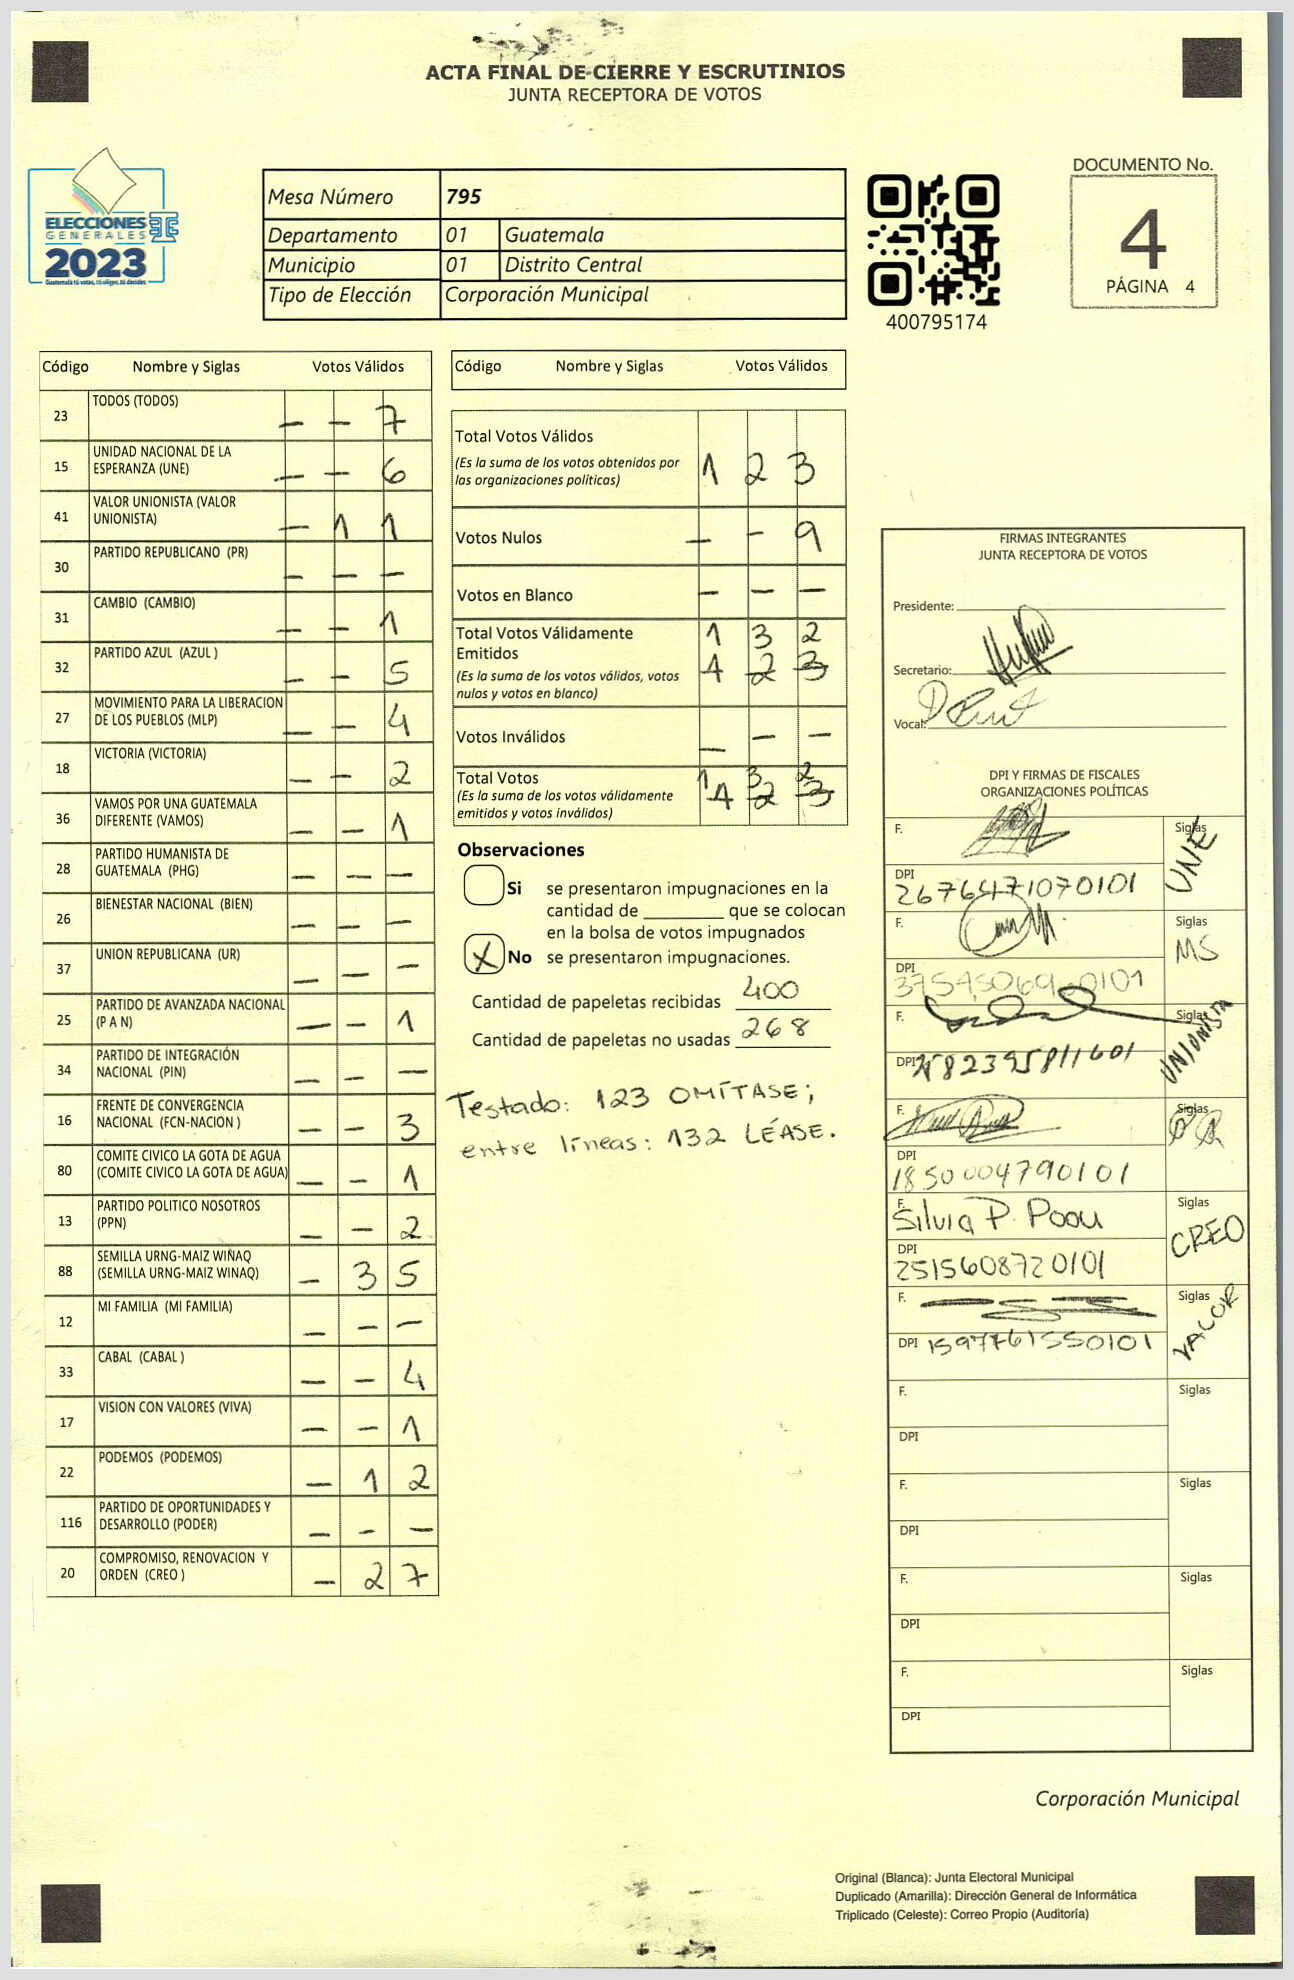 ACTA FINAL DE CIERRE Y ESCRUTINIOS
JUNTA RECEPTORA DE VOTOS
ELECCIONES
GENERALES
2023
Guatemala tú votas, tú eliges, tú decides
Mesa Número 795
Departamento 01 Guatemala
Municipio 01 Distrito Central
Tipo de Elección Corporación Municipal
400795174
DOCUMENTO No.
4
PÁGINA 4
Código Nombre y Siglas Votos Válidos
23 TODOS (TODOS) — — 7
15 UNIDAD NACIONAL DE LA
ESPERANZA (UNE) — — 6
41 VALOR UNIONISTA (VALOR
UNIONISTA) — 1 1
30 PARTIDO REPUBLICANO (PR) — — —
31 CAMBIO (CAMBIO) — — 1
32 PARTIDO AZUL (AZUL ) — — 5
27 MOVIMIENTO PARA LA LIBERACION
DE LOS PUEBLOS (MLP) — — 4
18 VICTORIA (VICTORIA) — — 2
36 VAMOS POR UNA GUATEMALA
DIFERENTE (VAMOS) — — 1
28 PARTIDO HUMANISTA DE
GUATEMALA (PHG) — — —
26 BIENESTAR NACIONAL (BIEN) — — —
37 UNION REPUBLICANA (UR) — — —
25 PARTIDO DE AVANZADA NACIONAL
(P A N) — — 1
34 PARTIDO DE INTEGRACIÓN
NACIONAL (PIN) — — —
16 FRENTE DE CONVERGENCIA
NACIONAL (FCN-NACION ) — — 3
80 COMITE CIVICO LA GOTA DE AGUA
(COMITE CIVICO LA GOTA DE AGUA) — — 1
13 PARTIDO POLITICO NOSOTROS
(PPN) — — 2
88 SEMILLA URNG-MAIZ WIÑAQ
(SEMILLA URNG-MAIZ WINAQ) — 3 5
12 MI FAMILIA (MI FAMILIA) — — —
33 CABAL (CABAL ) — — 4
17 VISION CON VALORES (VIVA) — — 1
22 PODEMOS (PODEMOS) — 1 2
116 PARTIDO DE OPORTUNIDADES Y
DESARROLLO (PODER) — — —
20 COMPROMISO, RENOVACION Y
ORDEN (CREO ) — 2 7
Código Nombre y Siglas Votos Válidos
Total Votos Válidos
(Es la suma de los votos obtenidos por
las organizaciones políticas) 1 2 3
Votos Nulos — — 9
Votos en Blanco — — —
Total Votos Válidamente 1 3 2
Emitidos 1 2 3
(Es la suma de los votos válidos, votos
nulos y votos en blanco)
Votos Inválidos — — —
Total Votos 1 3 2
(Es la suma de los votos válidamente 1 2 3
emitidos y votos inválidos)
Observaciones
Si se presentaron impugnaciones en la
cantidad de ________ que se colocan
en la bolsa de votos impugnados
X No se presentaron impugnaciones.
Cantidad de papeletas recibidas 400
Cantidad de papeletas no usadas 268
Testado: 123 OMÍTASE;
entre líneas: 132 LÉASE.
FIRMAS INTEGRANTES
JUNTA RECEPTORA DE VOTOS
Presidente:
Secretario:
Vocal:
DPI Y FIRMAS DE FISCALES
ORGANIZACIONES POLÍTICAS
F. Siglas UNE
DPI 2676471070101
F. Siglas MS
DPI
F. Siglas UNIONISTA
DPI
F. Siglas
DPI 1850004790101
F. Silvia P. Poou Siglas CREO
DPI 2515608720101
F. Siglas VALOR
DPI 1597761550101
F. Siglas
DPI
F. Siglas
DPI
F. Siglas
DPI
F. Siglas
DPI
Corporación Municipal
Original (Blanca): Junta Electoral Municipal
Duplicado (Amarilla): Dirección General de Informática
Triplicado (Celeste): Correo Propio (Auditoría)